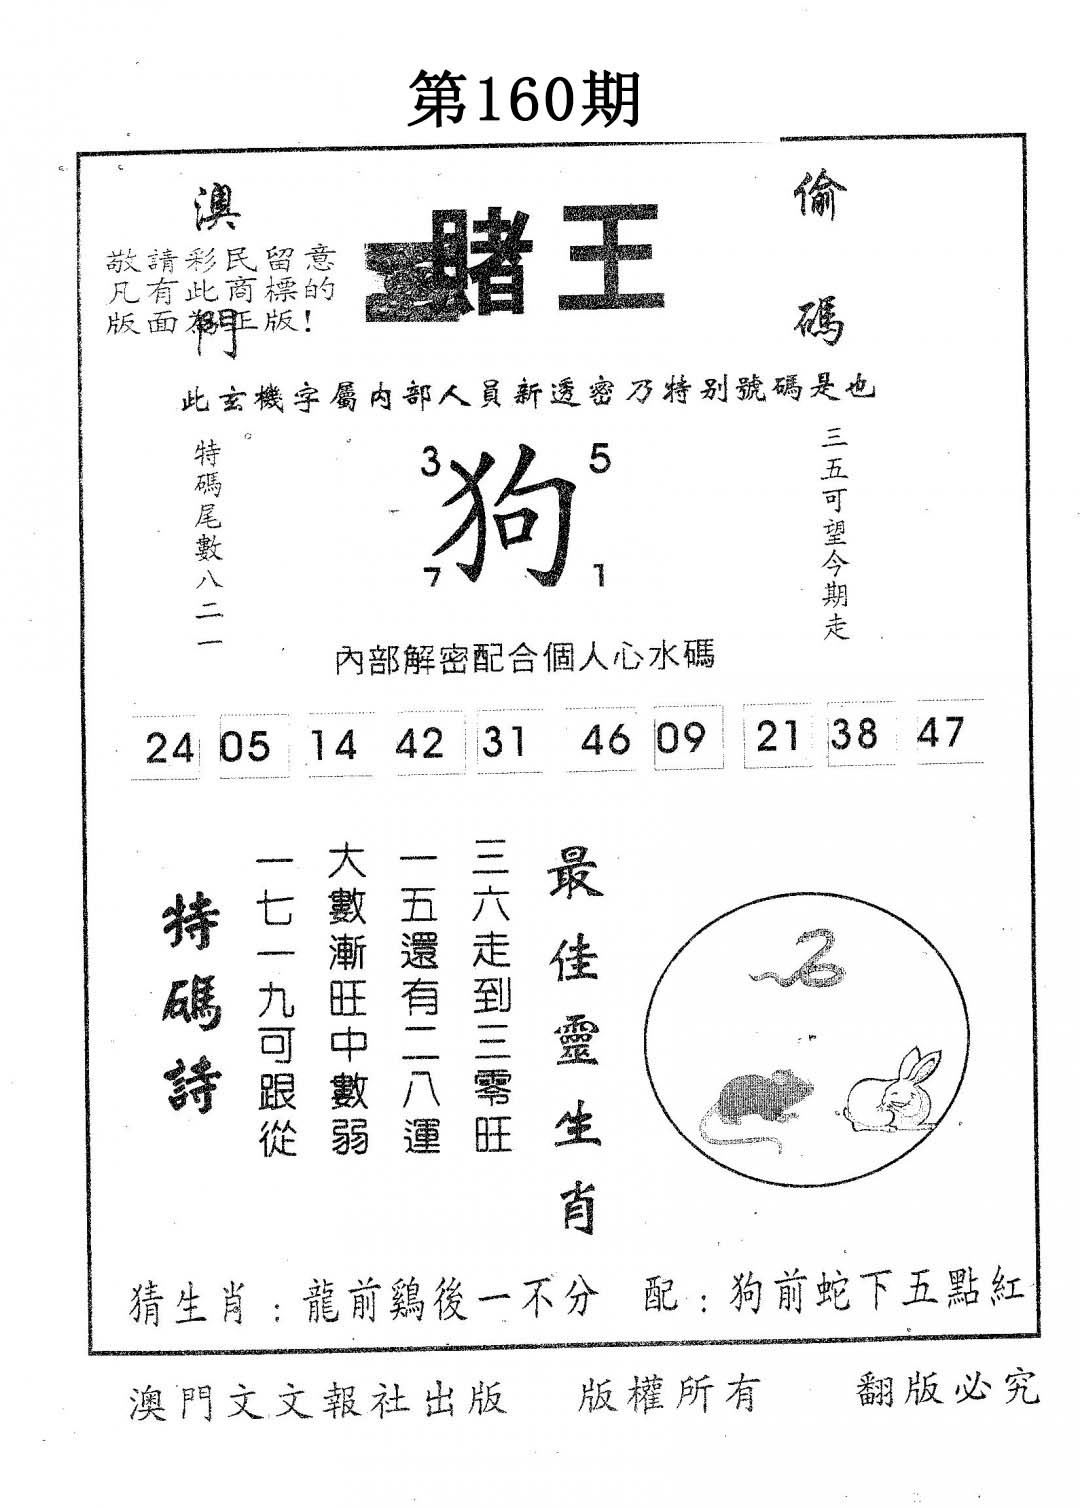 第160期
澳門
賭王
偷碼
敬請彩民留意
凡有此商標的
版面為正版!
此玄機字屬内部人員新透密乃特别號碼是也
特碼尾數八二一
3 5
狗
7 1
三五可望今期走
內部解密配合個人心水碼
24 05 14 42 31 46 09 21 38 47
特碼詩
一七一九可跟從
大數漸旺中數弱
一五還有二八運
三六走到三零旺
最佳靈生肖
猜生肖:龍前鷄後一不分 配:狗前蛇下五點紅
澳門文文報社出版 版權所有 翻版必究